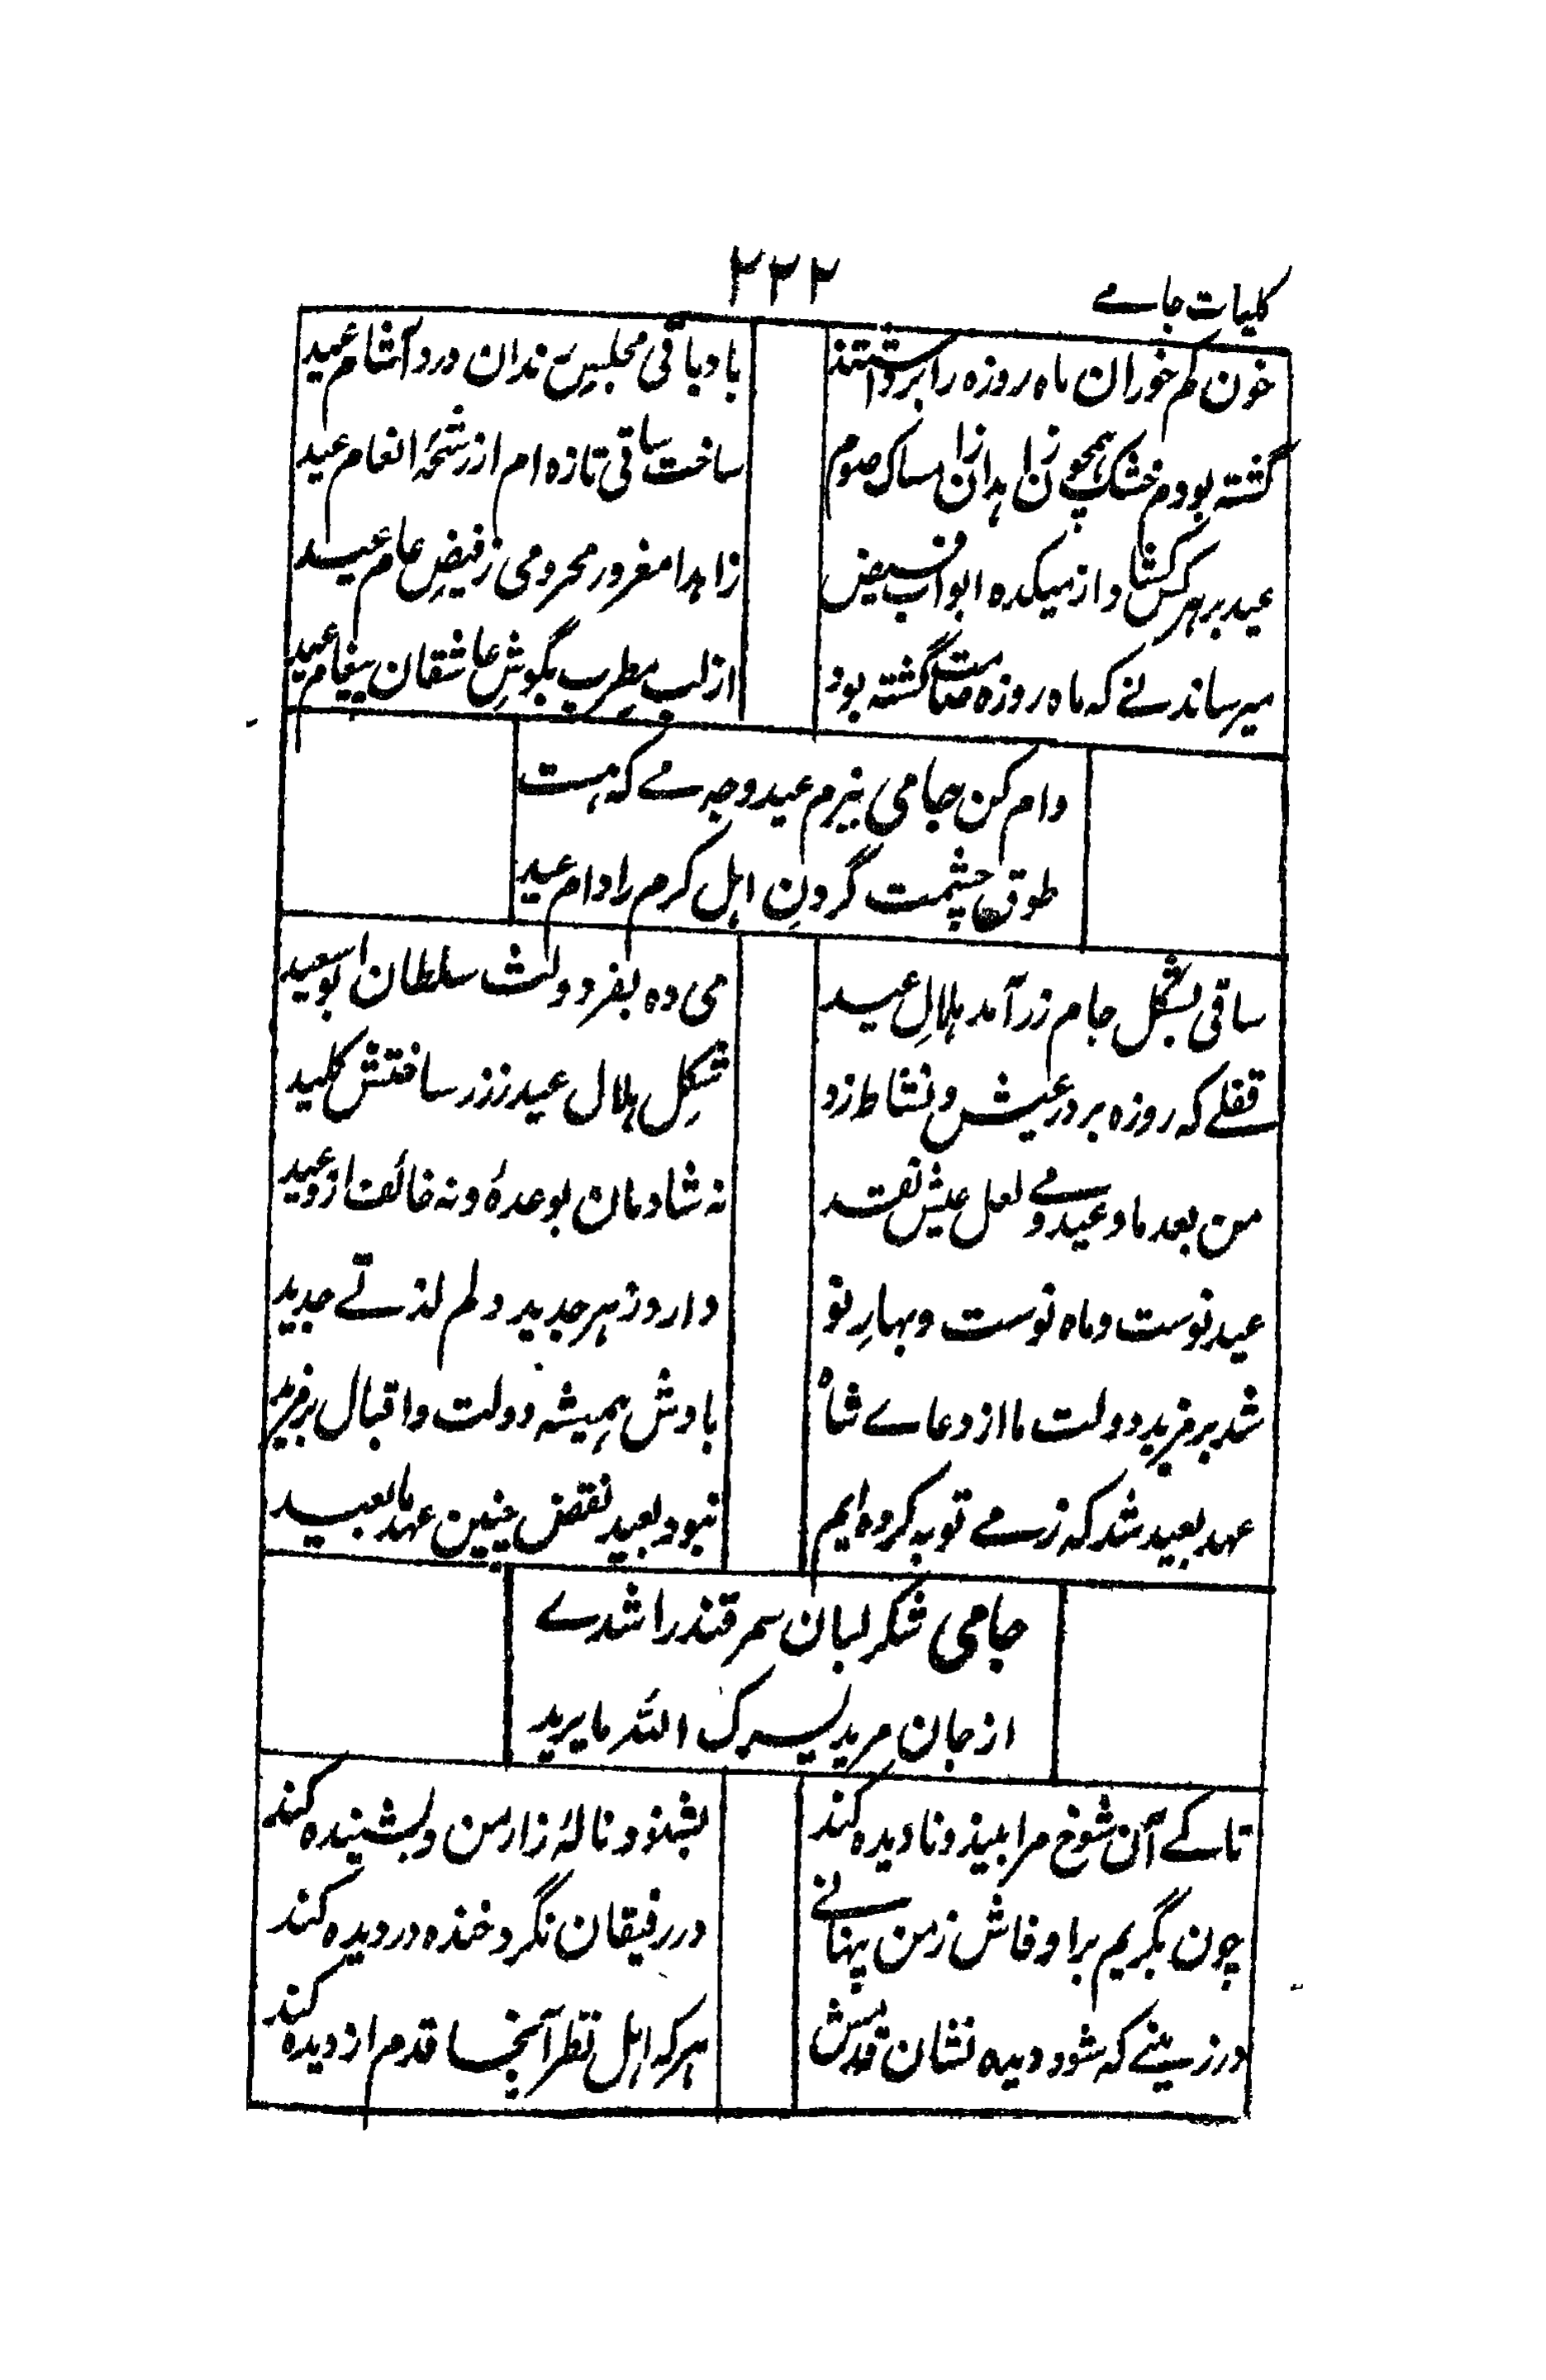 ۲۲۲
کلیات جامے
خون کم خوران ماه روزه را برداشتند
باد باقی مجلس رندان درد آشام عید
گشته بودم خشک همچون زاهدان زامساک صوم
ساخت ساقی تازه ام از رشحۂ انعام عید
عید بر هر کس کشاد از میکده ابواب فیض
زاهدا مغرور محرومی ز فیضِ عام عید
میرساند نے که ماه روزه صامت گشته بود
از لب مطرب بگوشِ عاشقان پیغام عید
وام کن جامی ببزم عید وجه مے که هست
طوق گردنِ اهل کرم را وام عید
ساقی بشکل جام زر آمد هلالِ عید
می ده بفر دولت سلطان ابو سعید
قفلے که روزه بر در عیش و نشاط زد
شکلِ هلال عید ز زر ساختش کلید
من بعد ما و عید و مے لعل عیش نقد
نه شادمان بوعدۂ و نه خائف از وعید
عید نوست و ماه نوست و بهارِ نو
دارد ز هر جدید دلم لذتے جدید
شد بر مزید دولت ما از دعاے شاه
بادش همیشه دولت و اقبال بر مزید
عهد بعید شد که ز مے توبه کرده ایم
نبود بعید نقض چنین عهد ما بعید
جامی شکر لبان سمرقند را شدے
از جان مرید یسرک الله ما یرید
تا کے آن شوخ مرا بیند و نادیده کند
بشنود نالۂ زار من و نشنیده کند
چون بگریم براو فاش ز من پنهانے
در رفیقان نگرد خنده دردیده کند
در زمینے که شود دیده نشان قدمش
هر که اهل نظر آنجا قدم از دیده کند